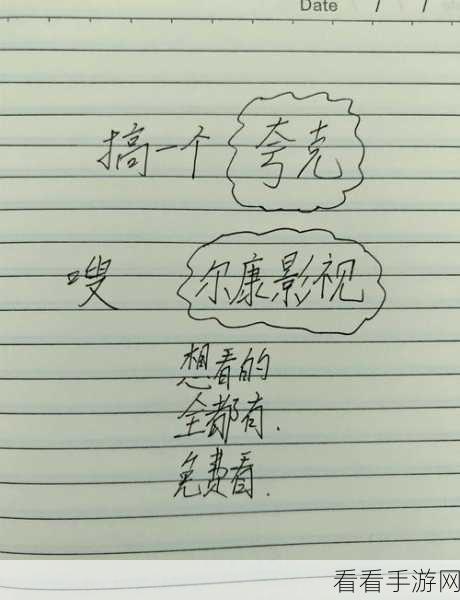 Date / / /
搞一个 夸克
嗖 尔康影视
想看的
全都有.
免费看.
看看手游网